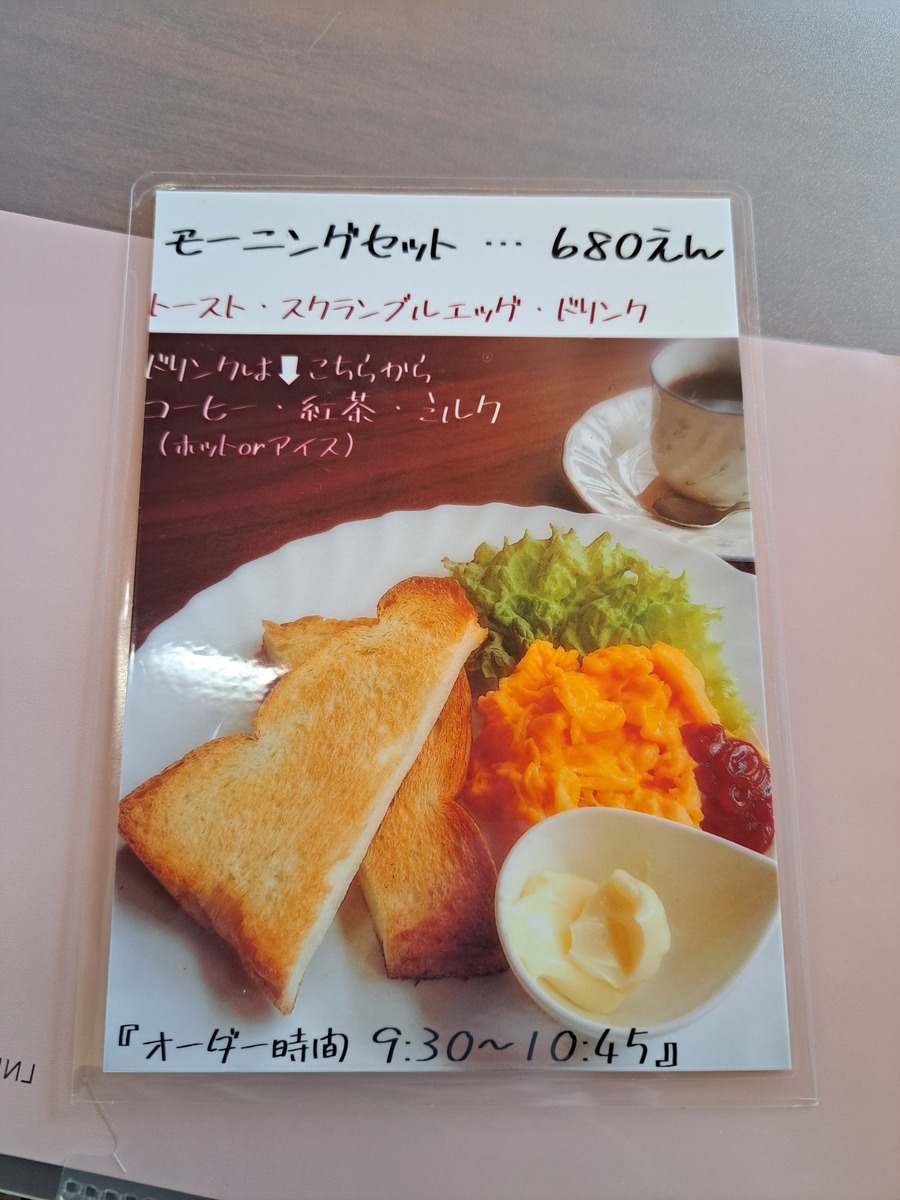 モーニングセット … 680えん
トースト・スクランブルエッグ・ドリンク
ドリンクは⬇こちらから
コーヒー・紅茶・ミルク
(ホットorアイス)
『オーダー時間 9:30~10:45』